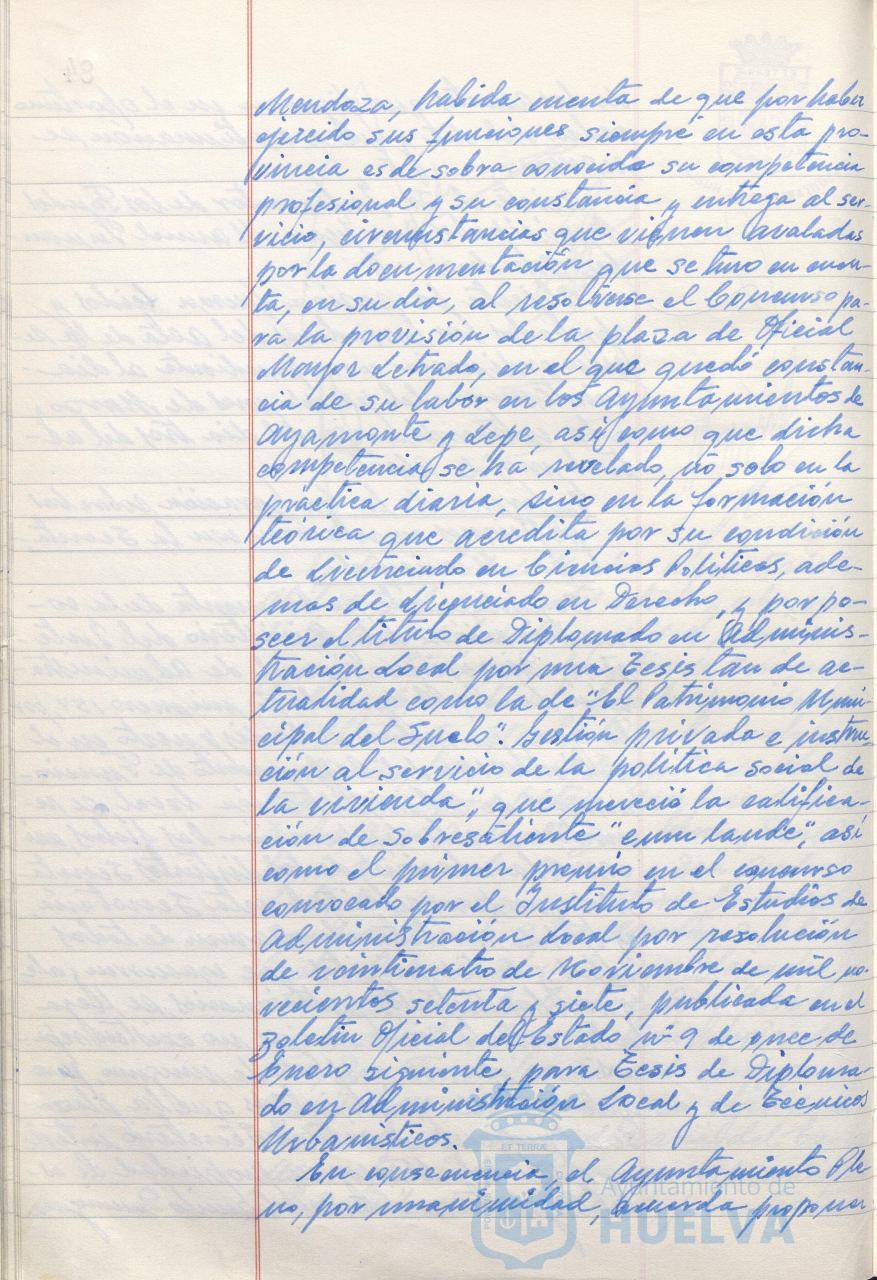 Mendoza, habida cuenta de que por haber
ejercido sus funciones siempre en esta pro-
vincia es de sobra conocida su competencia
profesional y su constancia y entrega al ser-
vicio, circunstancias que vienen avaladas
por la documentación que se tuvo en cuen-
ta, en su dia, al resolverse el Concurso pa-
ra la provisión de la plaza de Oficial
Mayor Letrado, en el que quedó constan-
cia de su labor en los Ayuntamientos de
Ayamonte y Lepe, asi como que dicha
competencia se ha revelado, no solo en la
práctica diaria, sino en la formación
teórica que acredita por su condición
de Licenciado en Ciencias Políticas, ade-
mas de Licenciado en Derecho, y por po-
seer el titulo de Diplomado en Adminis-
tración Local por una Tesis tan de ac-
tualidad como la de "El Patrimonio Muni-
cipal del Suelo". Gestión privada e institu-
ción al servicio de la política social de
la vivienda", que mereció la califica-
ción de sobresaliente "cum laude", así
como el primer premio en el concurso
convocado por el Instituto de Estudios de
Administración Local por resolución
de veinticuatro de Noviembre de mil no-
vecientos setenta y siete, publicada en el
Boletin Oficial del Estado nº 9 de once de
Enero siguiente, para Tesis de Diploma-
do en Administración Local y de Técnicos
Urbanísticos.
En consecuencia, el Ayuntamiento Ple-
no, por unanimidad, acuerda proponer
84
ET TERRÆ
Ayuntamiento de
HUELVA